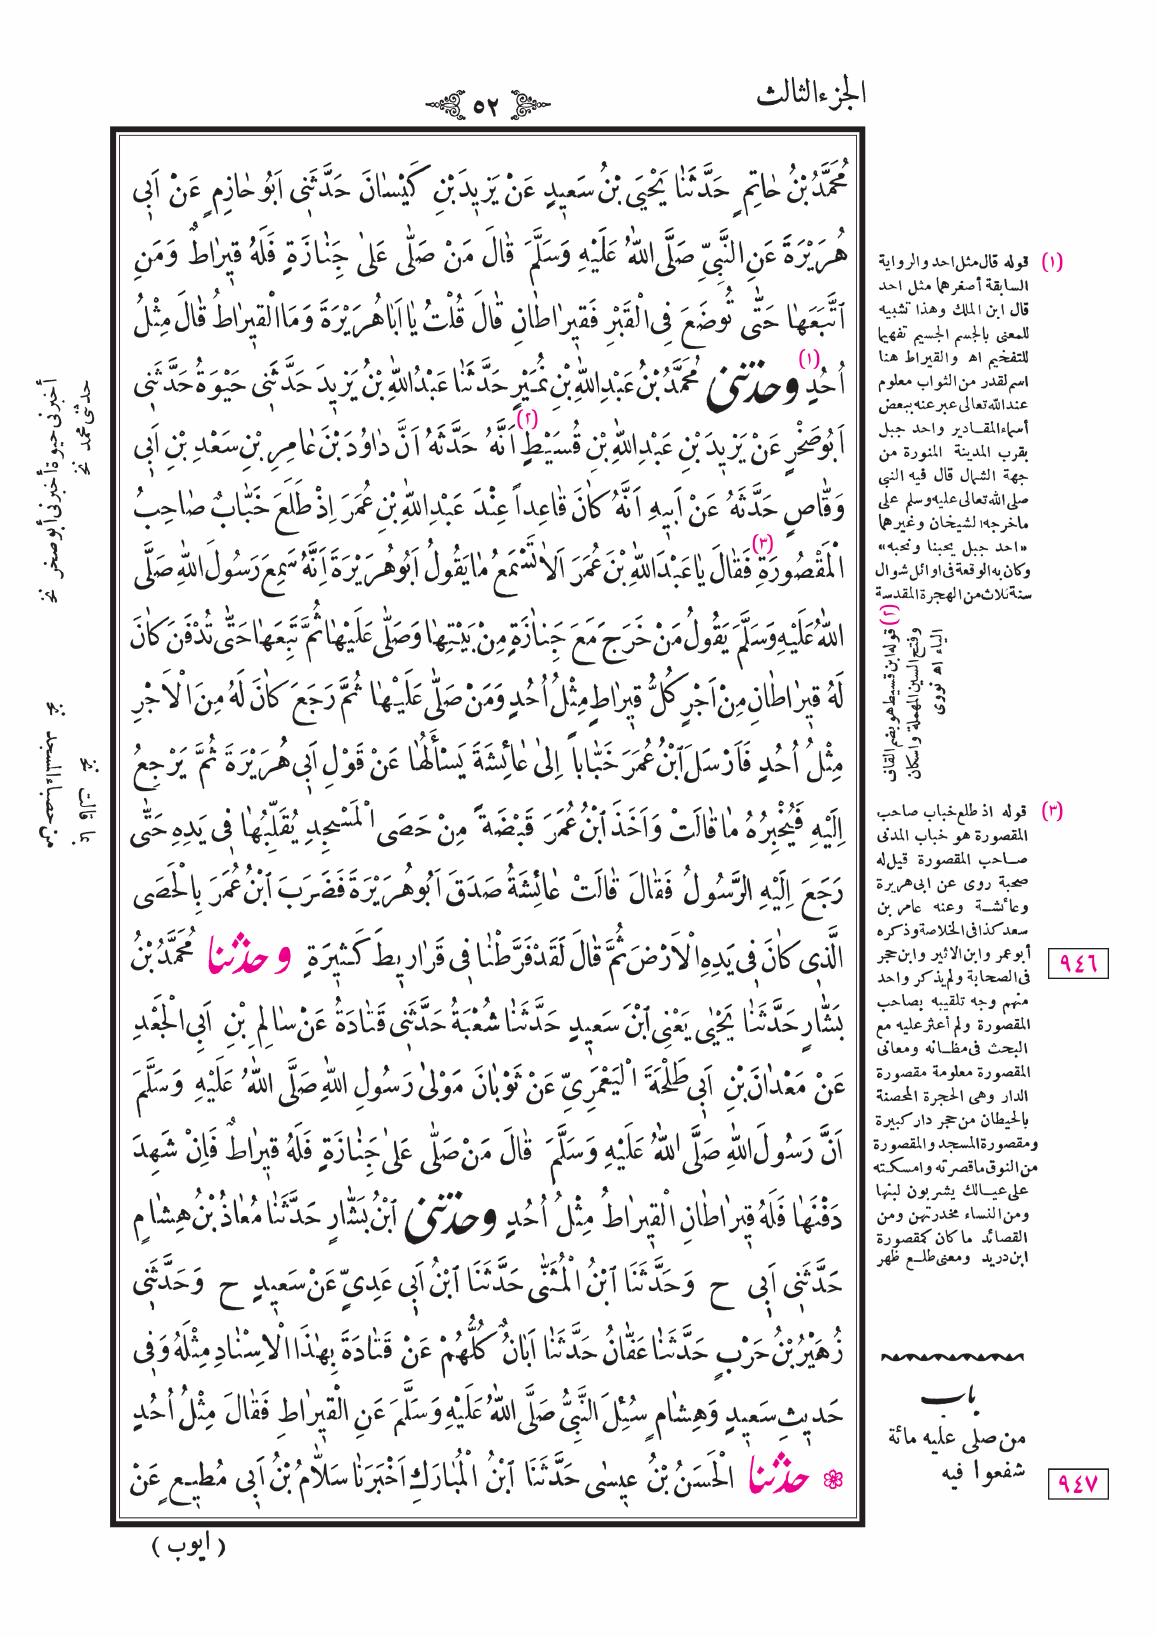 الجزء الثالث
٥٢
مُحَمَّدُ بْنُ حَاتِمٍ حَدَّثَنَا يَحْيَى بْنُ سَعِيدٍ عَنْ يَزِيدَ بْنِ كَيْسَانَ حَدَّثَنِى اَبُو حَازِمٍ عَنْ اَبِى
هُرَيْرَةَ عَنِ النَّبِىِّ صَلَّى اللهُ عَلَيْهِ وَسَلَّمَ قَالَ مَنْ صَلَّى عَلَى جِنَازَةٍ فَلَهُ قِيرَاطٌ وَمَنِ
اتَّبَعَهَا حَتَّى تُوضَعَ فِى الْقَبْرِ فَقِيرَاطَانِ قَالَ قُلْتُ يَا اَبَا هُرَيْرَةَ وَمَا الْقِيرَاطُ قَالَ مِثْلُ
اُحُدٍ (١) وحدثنى مُحَمَّدُ بْنُ عَبْدِ اللهِ بْنِ نُمَيْرٍ حَدَّثَنَا عَبْدُ اللهِ بْنُ يَزِيدَ حَدَّثَنِى حَيْوَةُ حَدَّثَنِى
اَبُو صَخْرٍ عَنْ يَزِيدَ بْنِ عَبْدِ اللهِ بْنِ قُسَيْطٍ (٢) اَنَّهُ حَدَّثَهُ اَنَّ دَاوُدَ بْنَ عَامِرِ بْنِ سَعْدِ بْنِ اَبِى
وَقَّاصٍ حَدَّثَهُ عَنْ اَبِيهِ اَنَّهُ كَانَ قَاعِداً عِنْدَ عَبْدِ اللهِ بْنِ عُمَرَ اِذْ طَلَعَ خَبَّابٌ صَاحِبُ
الْمَقْصُورَةِ (٣) فَقَالَ يَا عَبْدَ اللهِ بْنَ عُمَرَ اَلَا تَسْمَعُ مَا يَقُولُ اَبُو هُرَيْرَةَ اَنَّهُ سَمِعَ رَسُولَ اللهِ صَلَّى
اللهُ عَلَيْهِ وَسَلَّمَ يَقُولُ مَنْ خَرَجَ مَعَ جِنَازَةٍ مِنْ بَيْتِهَا وَصَلَّى عَلَيْهَا ثُمَّ تَبِعَهَا حَتَّى تُدْفَنَ كَانَ
لَهُ قِيرَاطَانِ مِنْ اَجْرٍ كُلُّ قِيرَاطٍ مِثْلُ اُحُدٍ وَمَنْ صَلَّى عَلَيْهَا ثُمَّ رَجَعَ كَانَ لَهُ مِنَ الْاَجْرِ
مِثْلُ اُحُدٍ فَاَرْسَلَ ابْنُ عُمَرَ خَبَّاباً اِلَى عَائِشَةَ يَسْأَلُهَا عَنْ قَوْلِ اَبِى هُرَيْرَةَ ثُمَّ يَرْجِعُ
اِلَيْهِ فَيُخْبِرُهُ مَا قَالَتْ وَاَخَذَ ابْنُ عُمَرَ قَبْضَةً مِنْ حَصَى الْمَسْجِدِ يُقَلِّبُهَا فِى يَدِهِ حَتَّى
رَجَعَ اِلَيْهِ الرَّسُولُ فَقَالَ قَالَتْ عَائِشَةُ صَدَقَ اَبُو هُرَيْرَةَ فَضَرَبَ ابْنُ عُمَرَ بِالْحَصَى
الَّذِى كَانَ فِى يَدِهِ الْاَرْضَ ثُمَّ قَالَ لَقَدْ فَرَّطْنَا فِى قَرَارِيطَ كَثِيرَةٍ وحدثنا مُحَمَّدُ بْنُ
بَشَّارٍ حَدَّثَنَا يَحْيَى يَعْنِى ابْنَ سَعِيدٍ حَدَّثَنَا شُعْبَةُ حَدَّثَنِى قَتَادَةُ عَنْ سَالِمِ بْنِ اَبِى الْجَعْدِ
عَنْ مَعْدَانَ بْنِ اَبِى طَلْحَةَ الْيَعْمَرِىِّ عَنْ ثَوْبَانَ مَوْلَى رَسُولِ اللهِ صَلَّى اللهُ عَلَيْهِ وَسَلَّمَ
اَنَّ رَسُولَ اللهِ صَلَّى اللهُ عَلَيْهِ وَسَلَّمَ قَالَ مَنْ صَلَّى عَلَى جَنَازَةٍ فَلَهُ قِيرَاطٌ فَاِنْ شَهِدَ
دَفْنَهَا فَلَهُ قِيرَاطَانِ الْقِيرَاطُ مِثْلُ اُحُدٍ وحدثنى ابْنُ بَشَّارٍ حَدَّثَنَا مُعَاذُ بْنُ هِشَامٍ
حَدَّثَنِى اَبِى ح وَحَدَّثَنَا ابْنُ الْمُثَنَّى حَدَّثَنَا ابْنُ اَبِى عَدِىٍّ عَنْ سَعِيدٍ ح وَحَدَّثَنِى
زُهَيْرُ بْنُ حَرْبٍ حَدَّثَنَا عَفَّانُ حَدَّثَنَا اَبَانُ كُلُّهُمْ عَنْ قَتَادَةَ بِهَذَا الْاِسْنَادِ مِثْلَهُ وَفِى
حَدِيثِ سَعِيدٍ وَهِشَامٍ سُئِلَ النَّبِىُّ صَلَّى اللهُ عَلَيْهِ وَسَلَّمَ عَنِ الْقِيرَاطِ فَقَالَ مِثْلُ اُحُدٍ
حدثنا الْحَسَنُ بْنُ عِيسَى حَدَّثَنَا ابْنُ الْمُبَارَكِ اَخْبَرَنَا سَلَّامُ بْنُ اَبِى مُطِيعٍ عَنْ
( ايوب )
(١) قوله قال مثل احد والرواية
السابقة أصغرهما مثل احد
قال ابن الملك وهذا تشبيه
للمعنى بالجسم الجسيم تفهيما
للتفخيم اه والقيراط هنا
اسم لقدر من الثواب معلوم
عند الله تعالى عبر عنه ببعض
أسماء المقادير واحد جبل
بقرب المدينة المنورة من
جهة الشمال قال فيه النبى
صلى الله تعالى عليه وسلم على
ماخرجه الشيخان وغيرهما
«احد جبل يحبنا ونحبه»
وكان به الوقعة فى اوائل شوال
سنة ثلاث من الهجرة المقدسة
(٢) قوله ابن قسيط هو بضم القاف
وفتح السين المهملة واسكان
الياء اه نووى
(٣) قوله اذ طلع خباب صاحب
المقصورة هو خباب المدنى
صاحب المقصورة قيل له
صحبة روى عن ابى هريرة
وعائشة وعنه عامر بن
سعد كذا فى الخلاصة وذكره
أبو عمر وابن الاثير وابن حجر
فى الصحابة ولم يذكر واحد
منهم وجه تلقيبه بصاحب
المقصورة ولم أعثر عليه مع
البحث فى مظانه ومعانى
المقصورة معلومة مقصورة
الدار وهى الحجرة المحصنة
بالحيطان من حجر دار كبيرة
ومقصورة المسجد والمقصورة
من النوق ماقصرته وامسكته
على عيالك يشربون لبنها
ومن النساء مخدرتهن ومن
القصائد ما كان كمقصورة
ابن دريد ومعنى طلع ظهر
٩٤٦
باب
من صلى عليه مائة
شفعوا فيه
٩٤٧
حدثنى محمد نخ
أخبرنى حيوة أخبرنى أبو صخر نخ
بما قالت نخ
من حصباء المسجد نخ